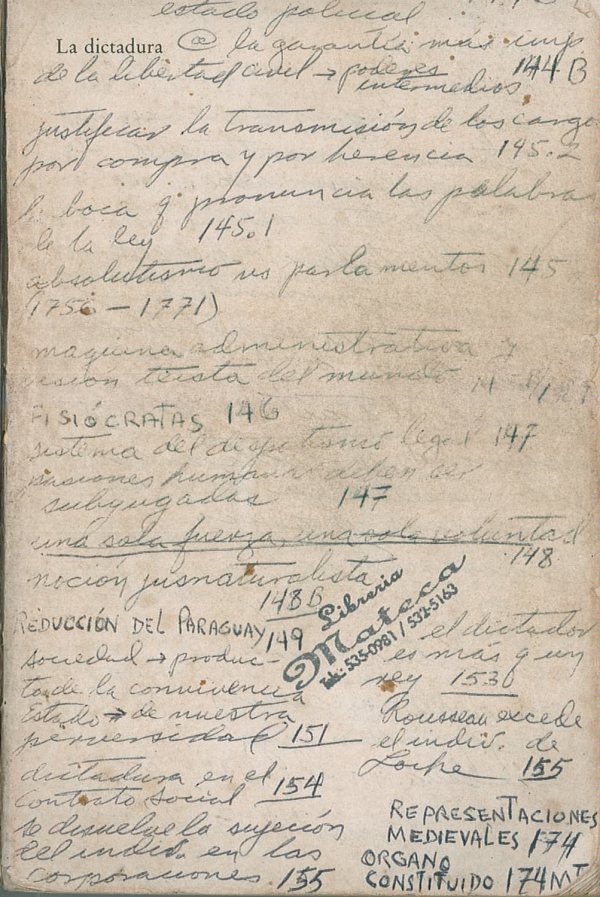 estado policial
La dictadura @ la garantía más imp
de la libertad civil → poderes 144B
intermedios
justificar la transmisión de los cargo
por compra y por herencia 145.2
boca q pronuncia las palabras
de la ley 145.1
absolutismo vs parlamentos 145
(1756 – 1771)
maquina administrativa y
visión teista del mundo
FISIÓCRATAS 146
sistema del despotismo legal 147
pasiones humanas deben ser
subyugadas 147
una sola fuerza, una sola voluntad
148
noción jusnaturalista
148B
REDUCCIÓN DEL PARAGUAY 149
sociedad → produc-
ta de la convivencia
Estado → de nuestra
perversidad 151
dictadura en el
contrato social 154
se disuelve la sujeción
del indiv. en las
corporaciones. 155
Librería
Mateca
Tel.: 535-0981 / 532-5163
el dictador
es más q un
rey 153
Rousseau excede
el indiv. de
Locke 155
REPRESENTACIONES
MEDIEVALES 174
ORGANO
CONSTITUIDO 174MT